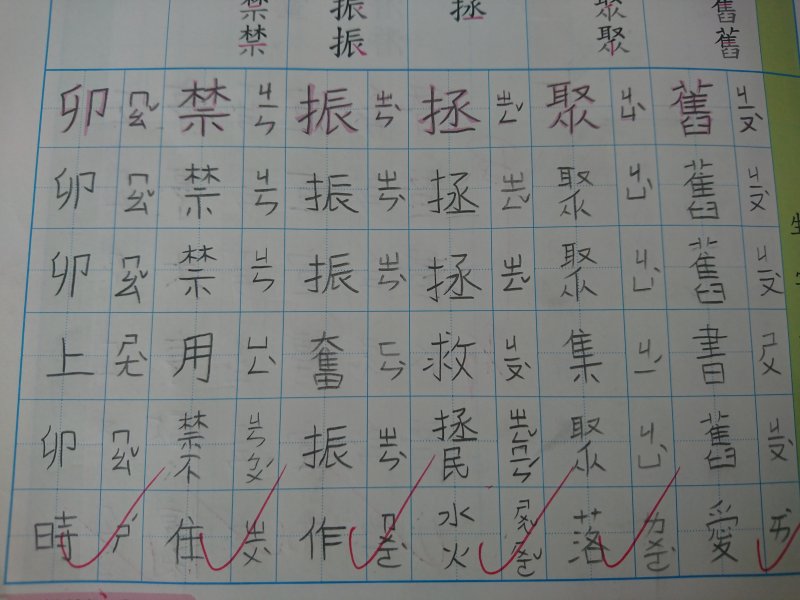 舊舊舊舊舊書舊愛
ㄐㄧㄡˋ ㄐㄧㄡˋ ㄐㄧㄡˋ ㄕㄨ ㄐㄧㄡˋ ㄞˋ
聚聚聚聚聚集聚落
ㄐㄩˋ ㄐㄩˋ ㄐㄩˋ ㄐㄧˊ ㄐㄩˋ ㄌㄨㄛˋ
拯拯拯拯救拯民水火
ㄓㄥˇ ㄓㄥˇ ㄓㄥˇ ㄐㄧㄡˋ ㄓㄥˇ ㄇㄧㄣˊ ㄕㄨㄟˇ ㄏㄨㄛˇ
振振振振振奮振作
ㄓㄣˋ ㄓㄣˋ ㄓㄣˋ ㄈㄣˋ ㄓㄣˋ ㄗㄨㄛˋ
禁禁禁禁禁用禁不住
ㄐㄧㄣ ㄐㄧㄣ ㄐㄧㄣ ㄩㄥˋ ㄐㄧㄣ ㄅㄨˊ ㄓㄨˋ
卯卯卯上卯時
ㄇㄠˇ ㄇㄠˇ ㄇㄠˇ ㄕㄤˋ ㄇㄠˇ ㄕˊ